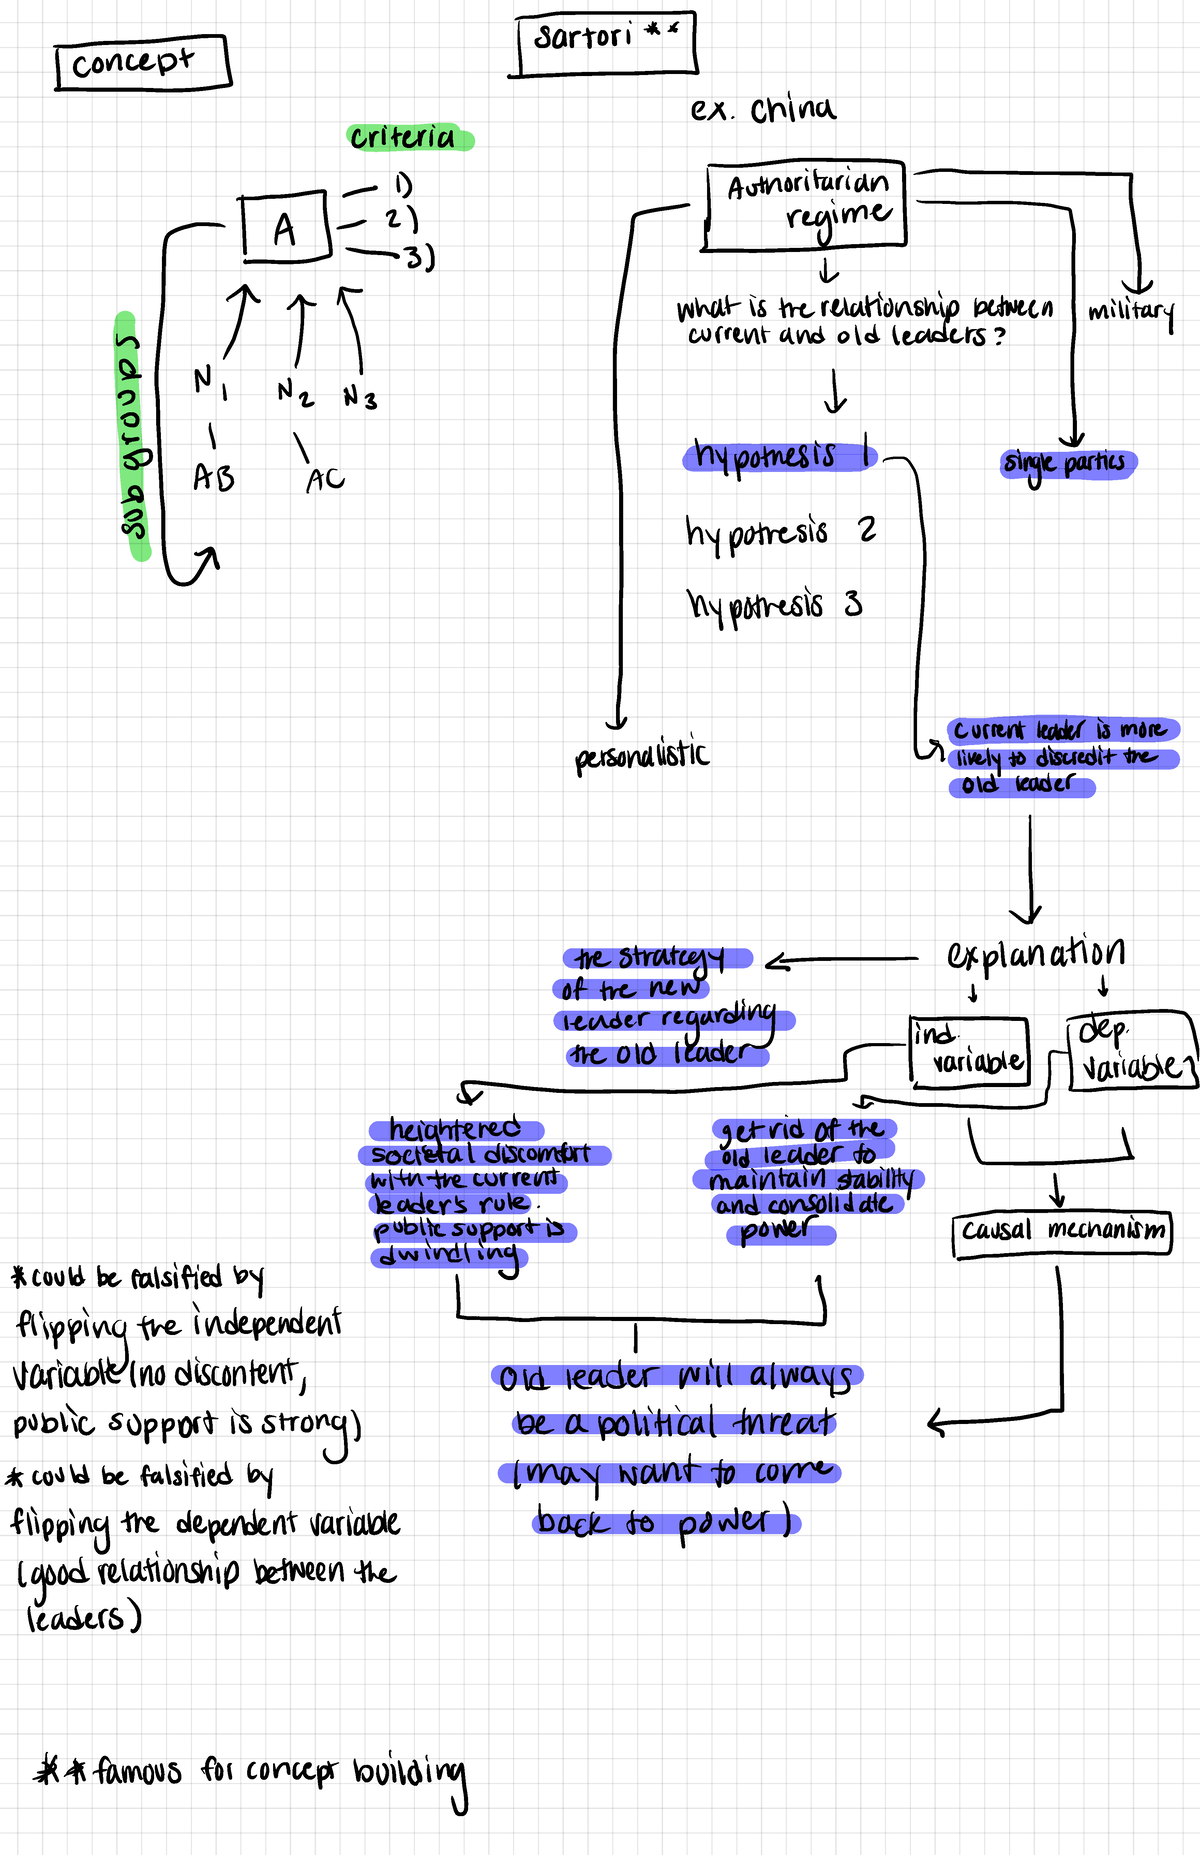 concept
Sartori **
ex. China
criteria
A
1)
2)
3)
sub groups
N1
N2
N3
AB
AC
Authoritarian
regime
what is the relationship between
current and old leaders?
military
hypothesis 1
single parties
hypothesis 2
hypothesis 3
personalistic
current leader is more
likely to discredit the
old leader
explanation
the strategy
of the new
leader regarding
the old leader
ind.
variable
dep.
variable
heightened
societal discomfort
with the current
leader's rule.
public support is
dwindling
get rid of the
old leader to
maintain stability
and consolidate
power
causal mechanism
*could be falsified by
flipping the independent
variable (no discontent,
public support is strong)
* could be falsified by
flipping the dependent variable
(good relationship between the
leaders)
old leader will always
be a political threat
(may want to come
back to power)
** famous for concept building